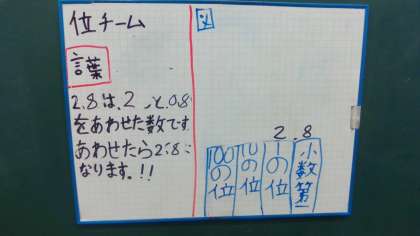 位チーム
言葉
2.8は、2 と0.8
をあわせた数です
あわせたら2.8に
なります。!!
図
2.8
100の位
10の位
1の位
小数第一